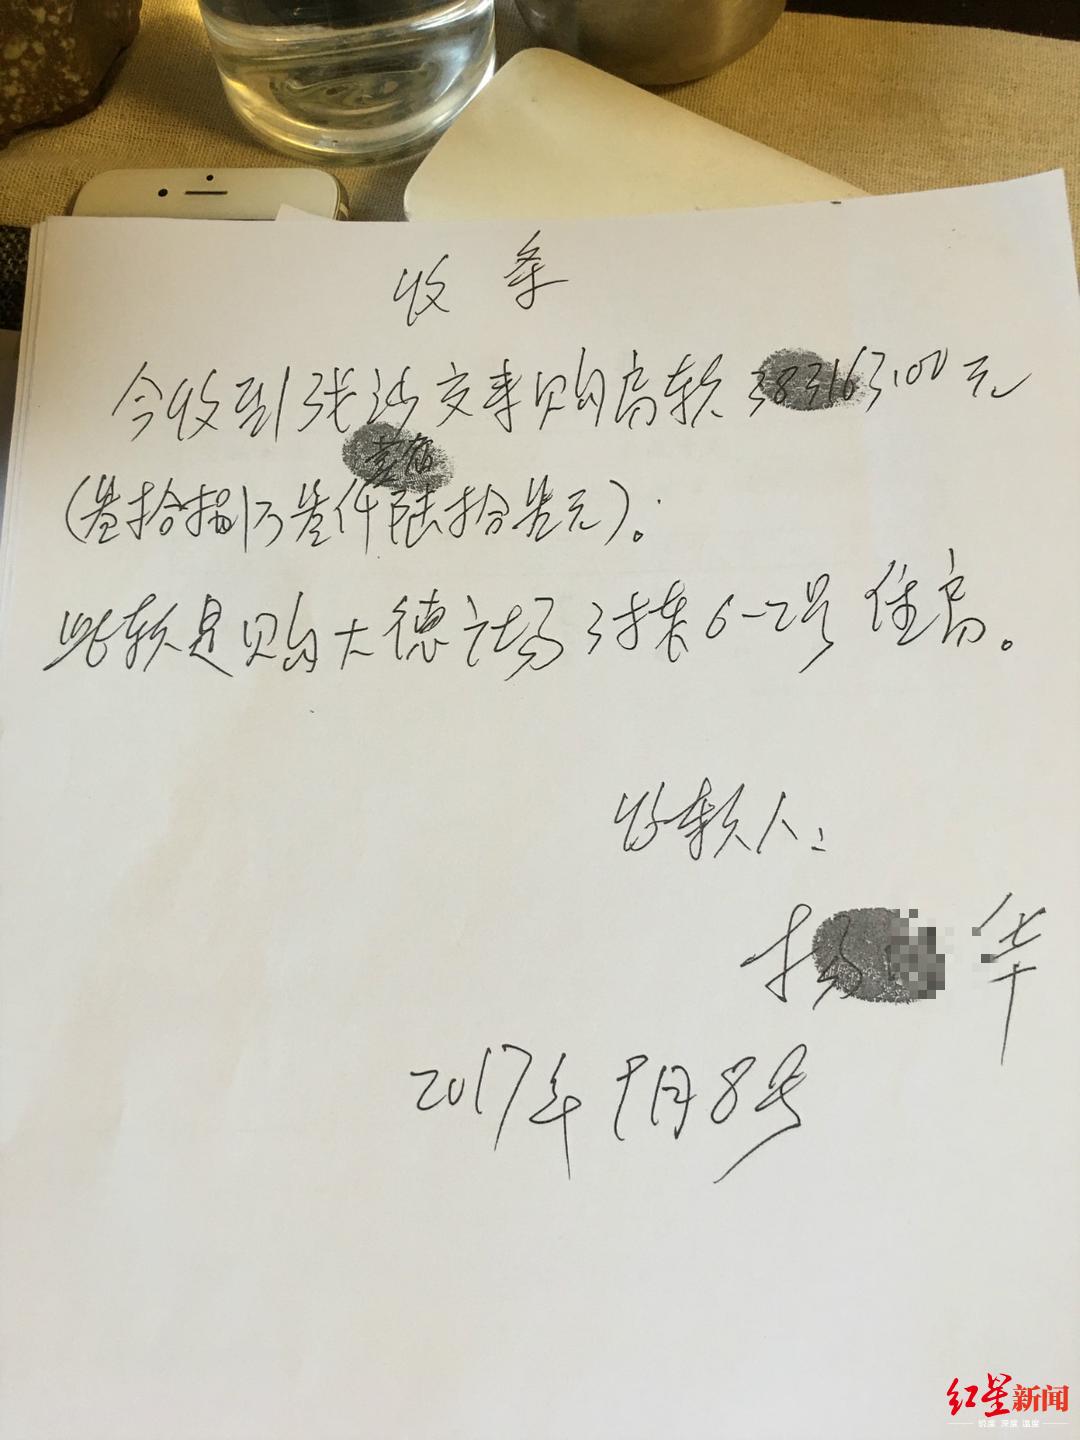 收条
今收到张沙交来购房款383163.00元
壹佰
(叁拾捌万叁仟陆拾叁元)。
此款是购大德广场3栋6-2号住房。
收款人:
杨 华
2017年9月8号
红星新闻
锐度 深度 温度